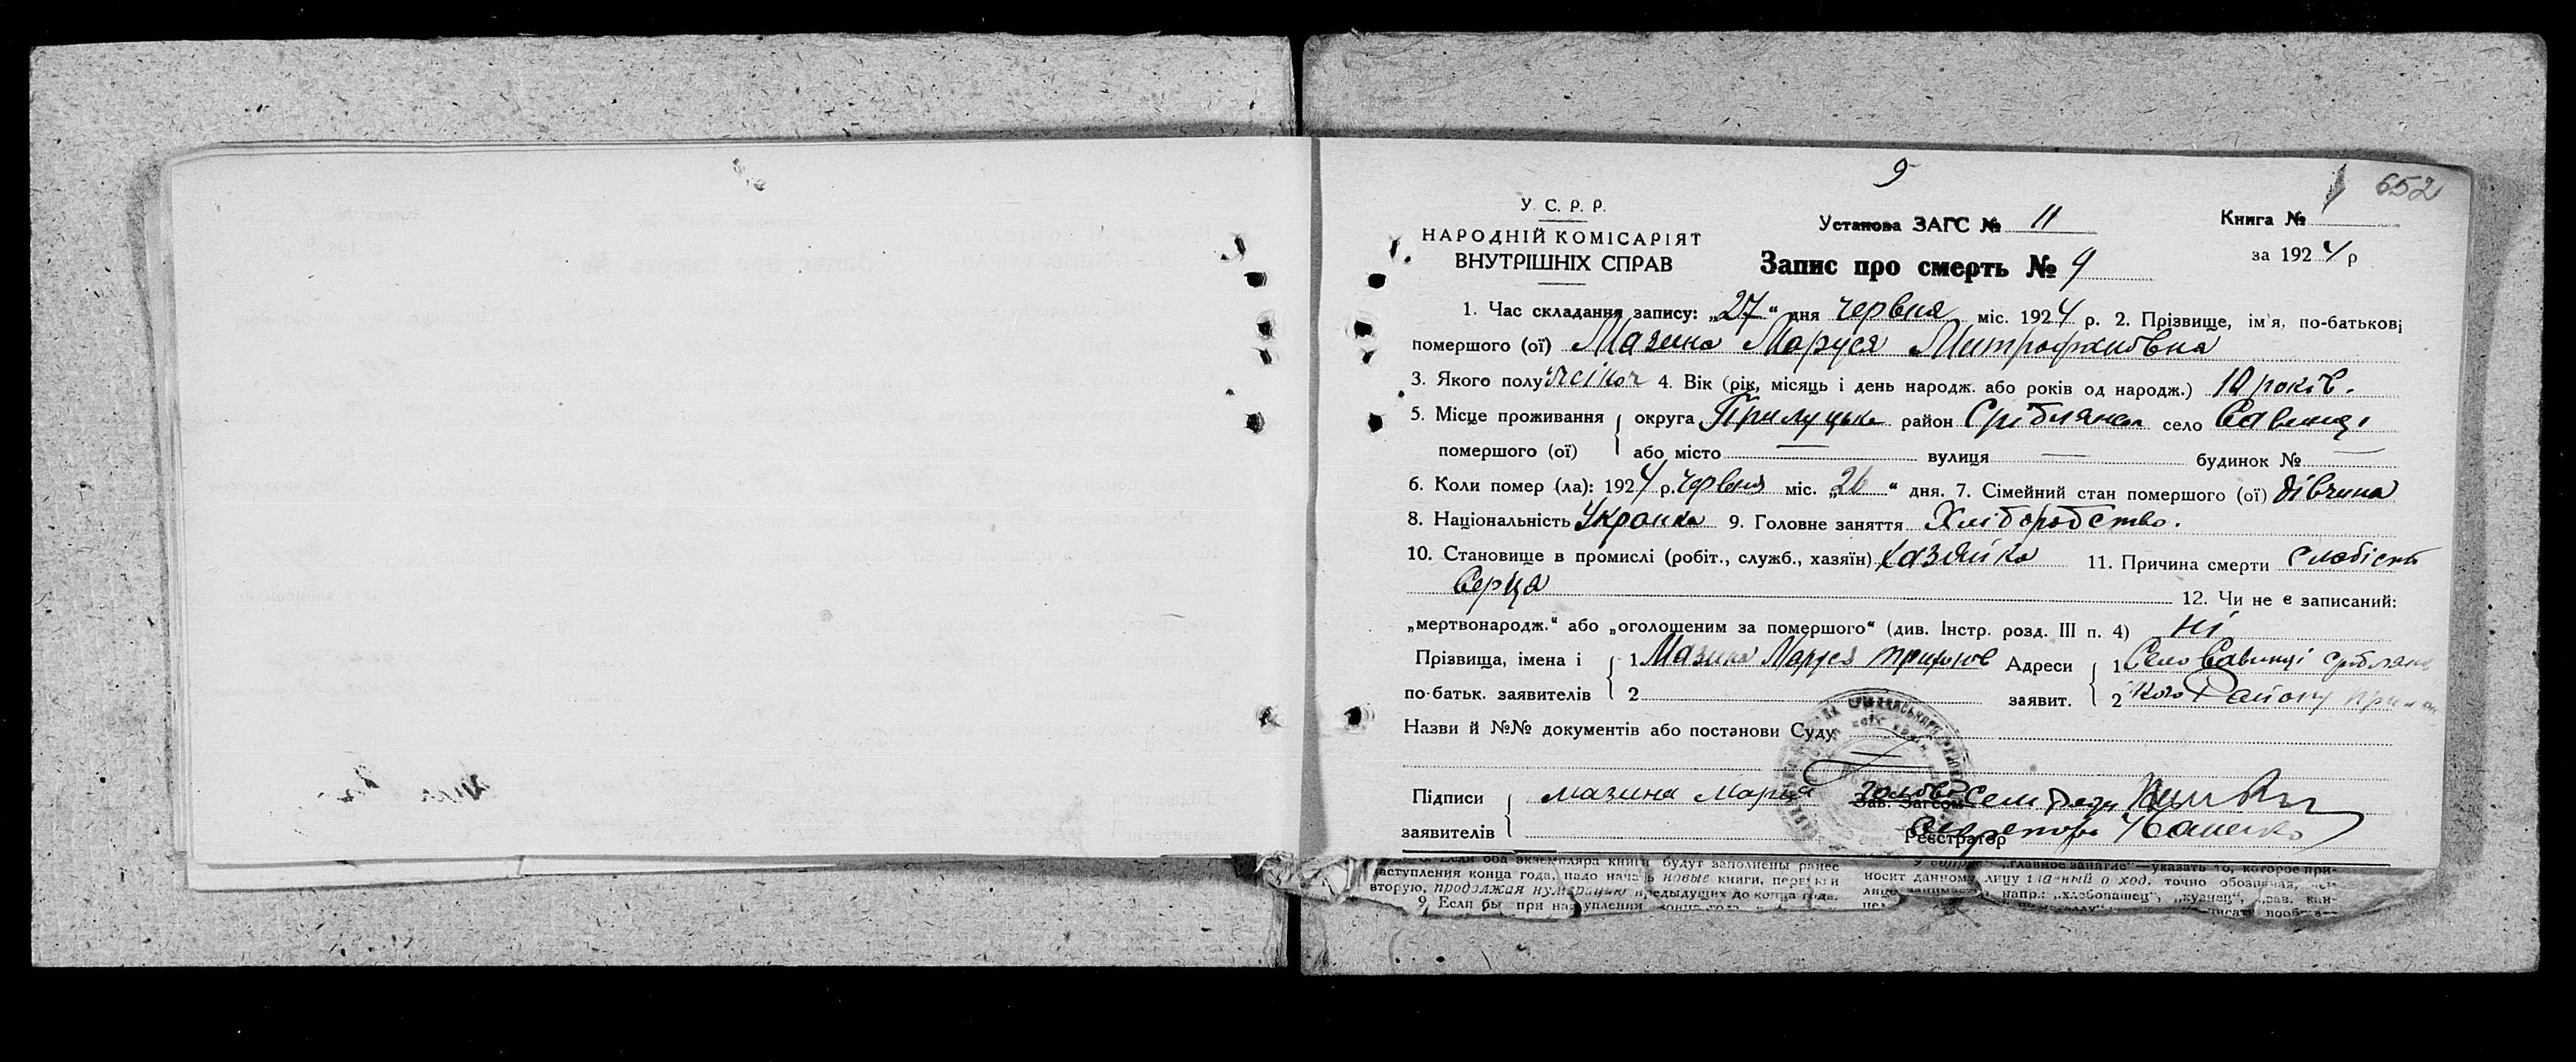 9
652
У. С. Р. Р.
НАРОДНІЙ КОМІСАРІЯТ
ВНУТРІШНІХ СПРАВ
Установа ЗАГС № 11
Книга № 1
Запис про смерть № 9
за 1924 р
1. Час складання запису: „27“ дня червня міс. 1924 р. 2. Прізвище, ім'я, по-батькові
помершого (ої) Мазина Маруся Митрофановна
3. Якого полу жіноч 4. Вік (рік, місяць і день народж. або років од народж.) 10 років.
5. Місце проживання округа Прилуцька район Срiблянск село Савинці
помершого (ої) або місто — вулиця — будинок № —
6. Коли помер (ла): 1924 р. червня міс. „26“ дня. 7. Сімейний стан помершого (ої) дівчина
8. Національність Українка 9. Головне заняття Хлібородство.
10. Становище в промислі (робіт., служб., хазяїн) хазяйка 11. Причина смерти слабість
серця
12. Чи не є записаний:
„мертвонародж.“ або „оголошеним за помершого“ (див. Інстр. розд. III п. 4) ні
Прізвища, імена і 1 Мазина Маруся Адреси 1 Село Савинці
по-батьк. заявителів 2 заявит. 2 Району
Назви й №№ документів або постанови Суду
Підписи мазина Голова Сель Ради
Зав. Загсом
заявителів Секретарь
Реєстратор
Если оба экземпляра книги будут заполнены ранее
наступления конца года, надо начать новые книги, первую и
вторую, продолжая нумерацию предыдущих до конца года.
9. Если бы при наступлении конца года
„главное занятие“ — указать то, которое при-
носит данному лицу главный доход, точно обозначая, чем
напр.: „хлебопашец“, „кузнец“, „зав. кан-